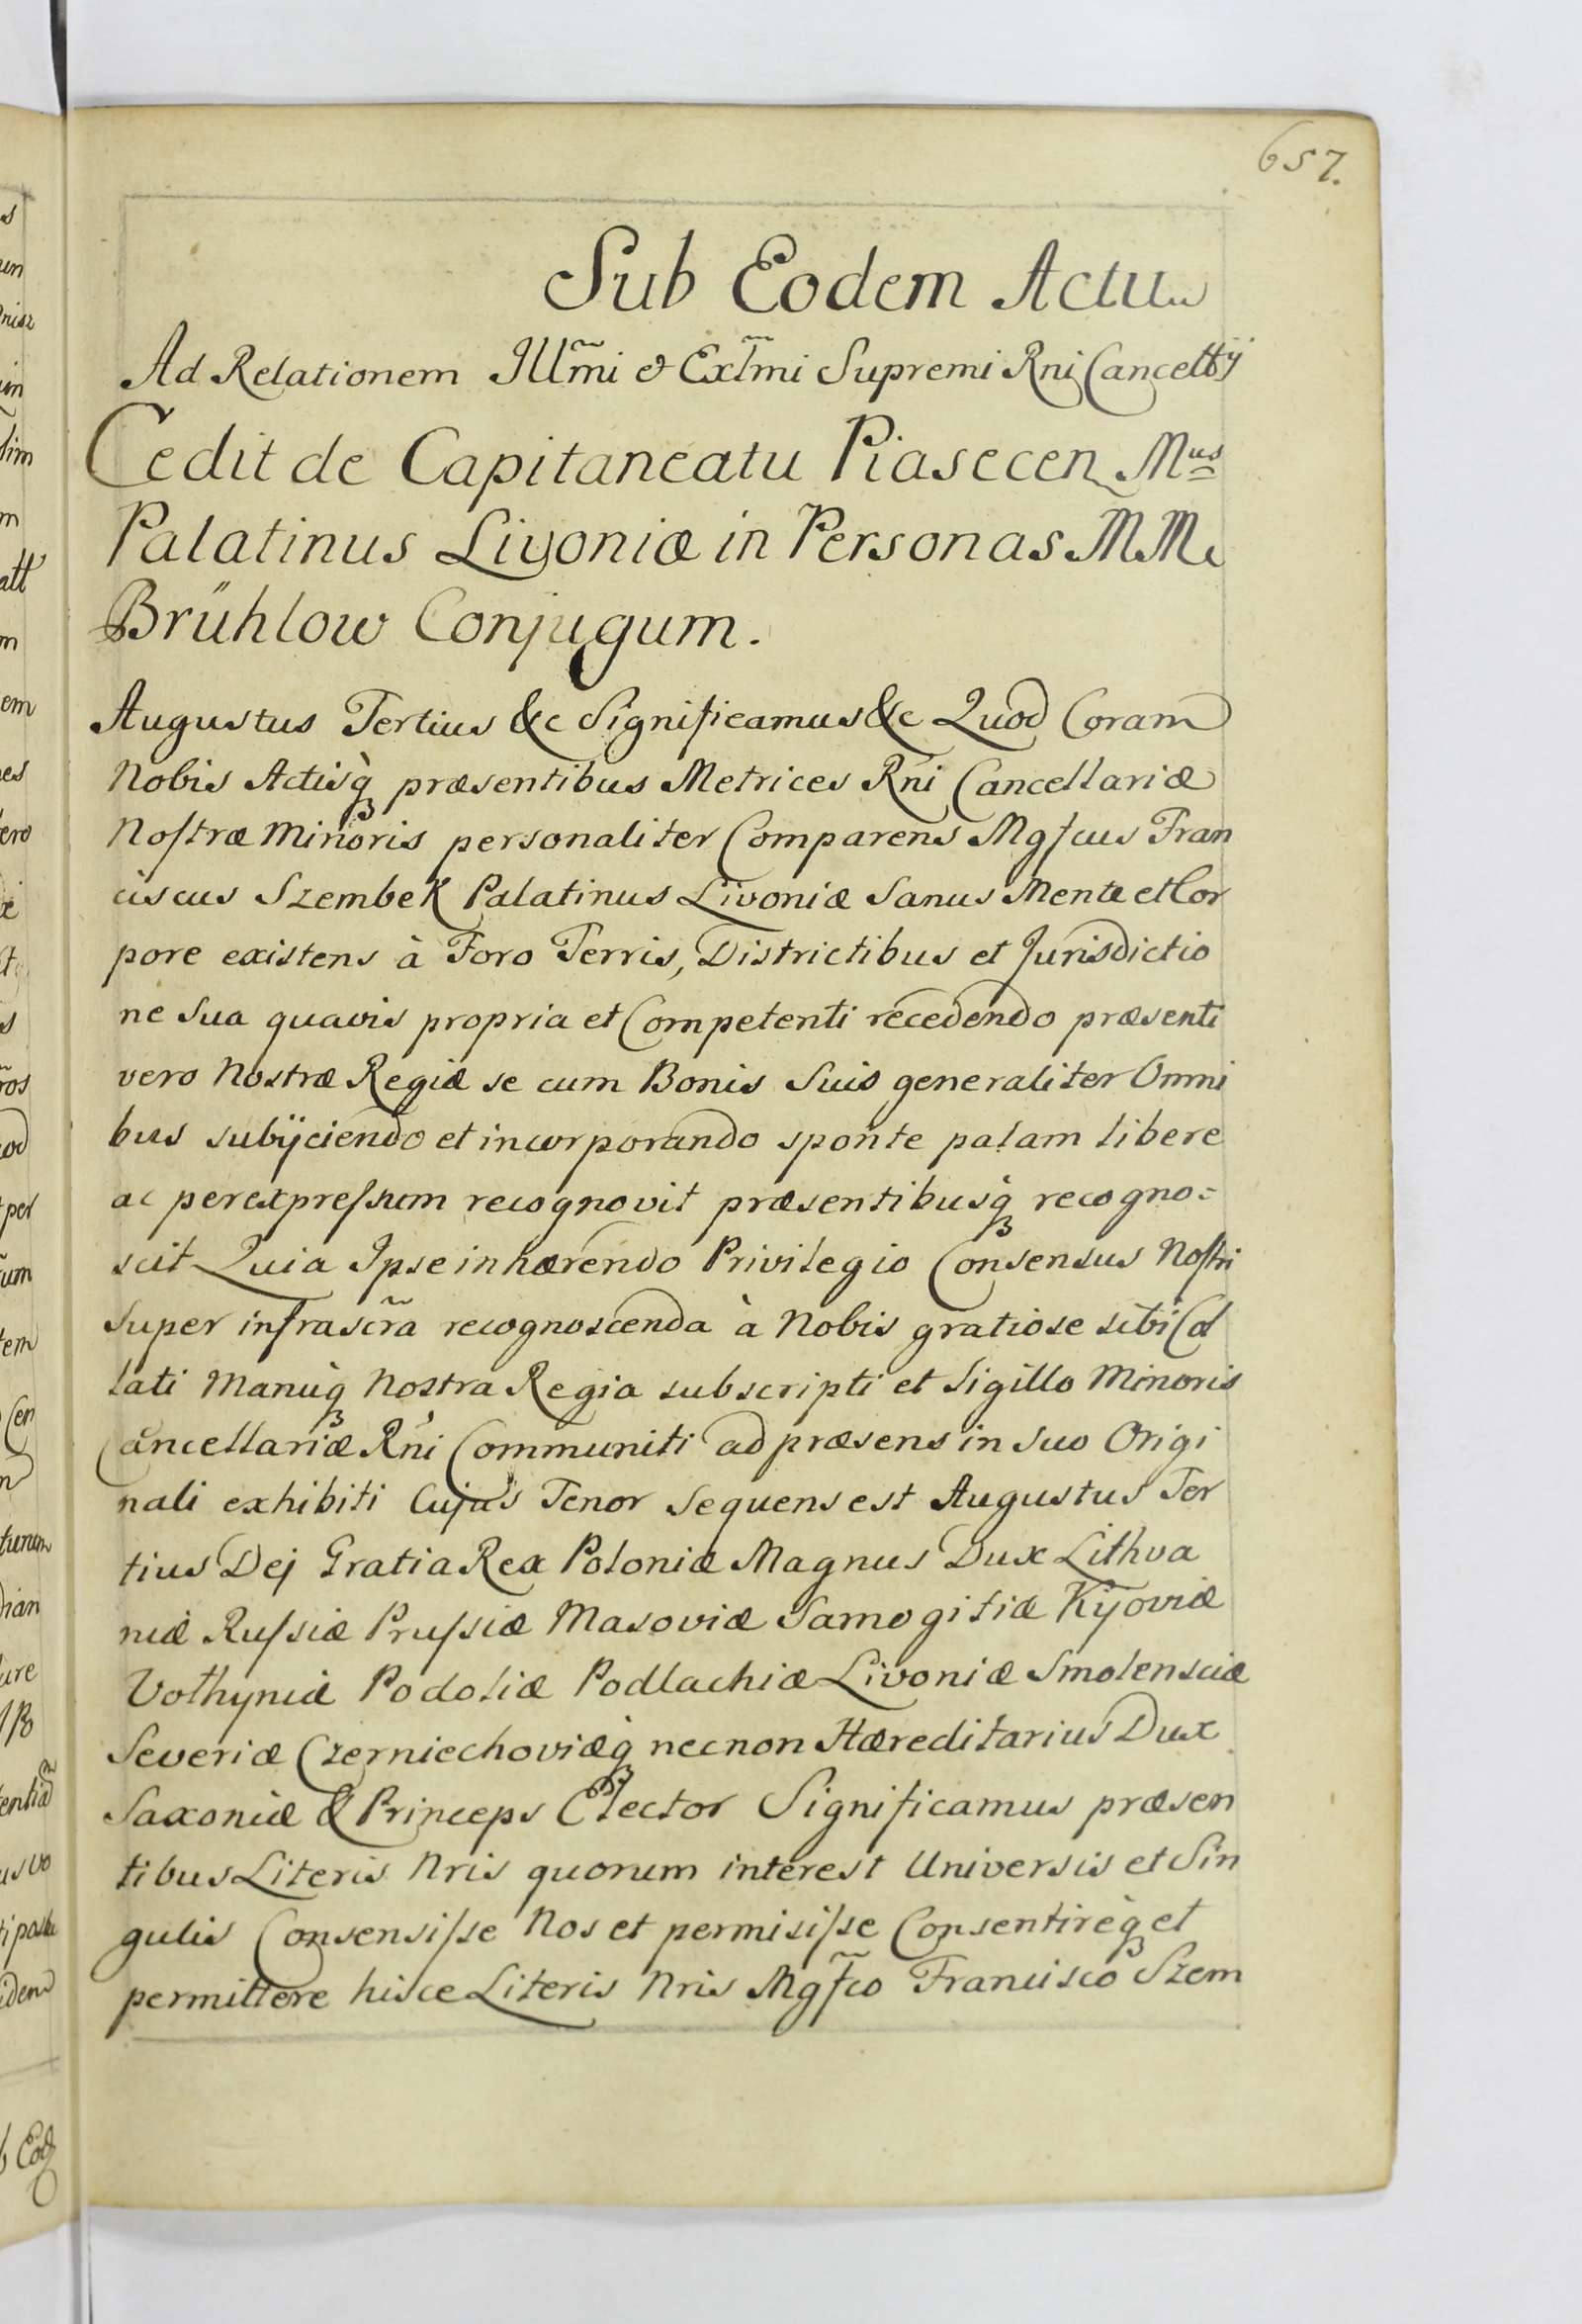 657.
Sub Eodem Actu
Ad Relationem Illm̃i & Exl̃mi Supremi Rni Cancellrÿ
Cedit de Capitaneatu Piasecen Mus
Palatinus Livoniæ in Personas MM
Brühlow Conjugum.
Augustus Tertius &c Significamus &c Quod Coram
Nobis Actisq̀ præsentibus Metrices Rni Cancellariæ
Nostræ Minoris personaliter Comparens Mgfcus Fran
ciscus Szembek Palatinus Livoniæ Sanus Mente et Cor
pore existens à Foro Terris, Districtibus et Jurisdictio
ne Sua quavis propria et Competenti recedendo præsenti
vero Nostræ Regiæ se cum Bonis Suis generaliter Omni
bus subÿciendo et incorporando sponte palam libere
ac perexpressum recognovit præsentibusq̀ recogno=
scit Quia Ipse inhærendo Privilegio Consensus Nostri
Super infrascr̃a recognoscenda à Nobis gratiose sibi Col
lati Manuq̀ Nostra Regia subscripti et Sigillo Minoris
Cancellariæ Rni Communiti ad præsens in suo Origi
nali exhibiti Cujus Tenor Sequens est Augustus Ter
tius Dej Gratia Rex Poloniæ Magnus Dux Lithva
niæ Russiæ Prussiæ Masoviæ Samogitiæ Kijoviæ
Volhyniæ Podoliæ Podlachiæ Livoniæ Smolensciæ
Severiæ Czerniechoviæq̀ necnon Hæreditarius Dux
Saxoniæ & Princeps Elector Significamus præsen
tibus Literis Nris quorum interest Universis et Sin
gulis Consensisse Nos et permisisse Consentireq̀ et
permittere hisce Literis Nris Mgf̃co Francisco Szem